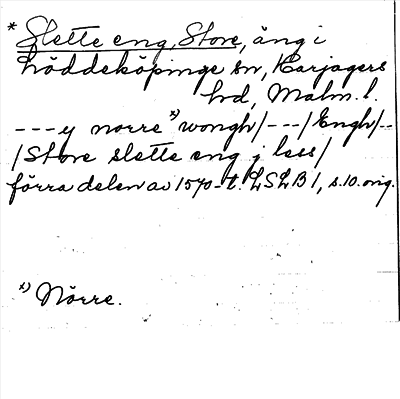 * Slette eng, Store, äng i
Löddeköpinge sn, Harjagers
hd, Malm. l.
---y norre x) wongh/---/Engh/--
/Store slette eng j less/
förra delen av 1570-t. LSLB 1, s. 10. orig.
x) Nörre.